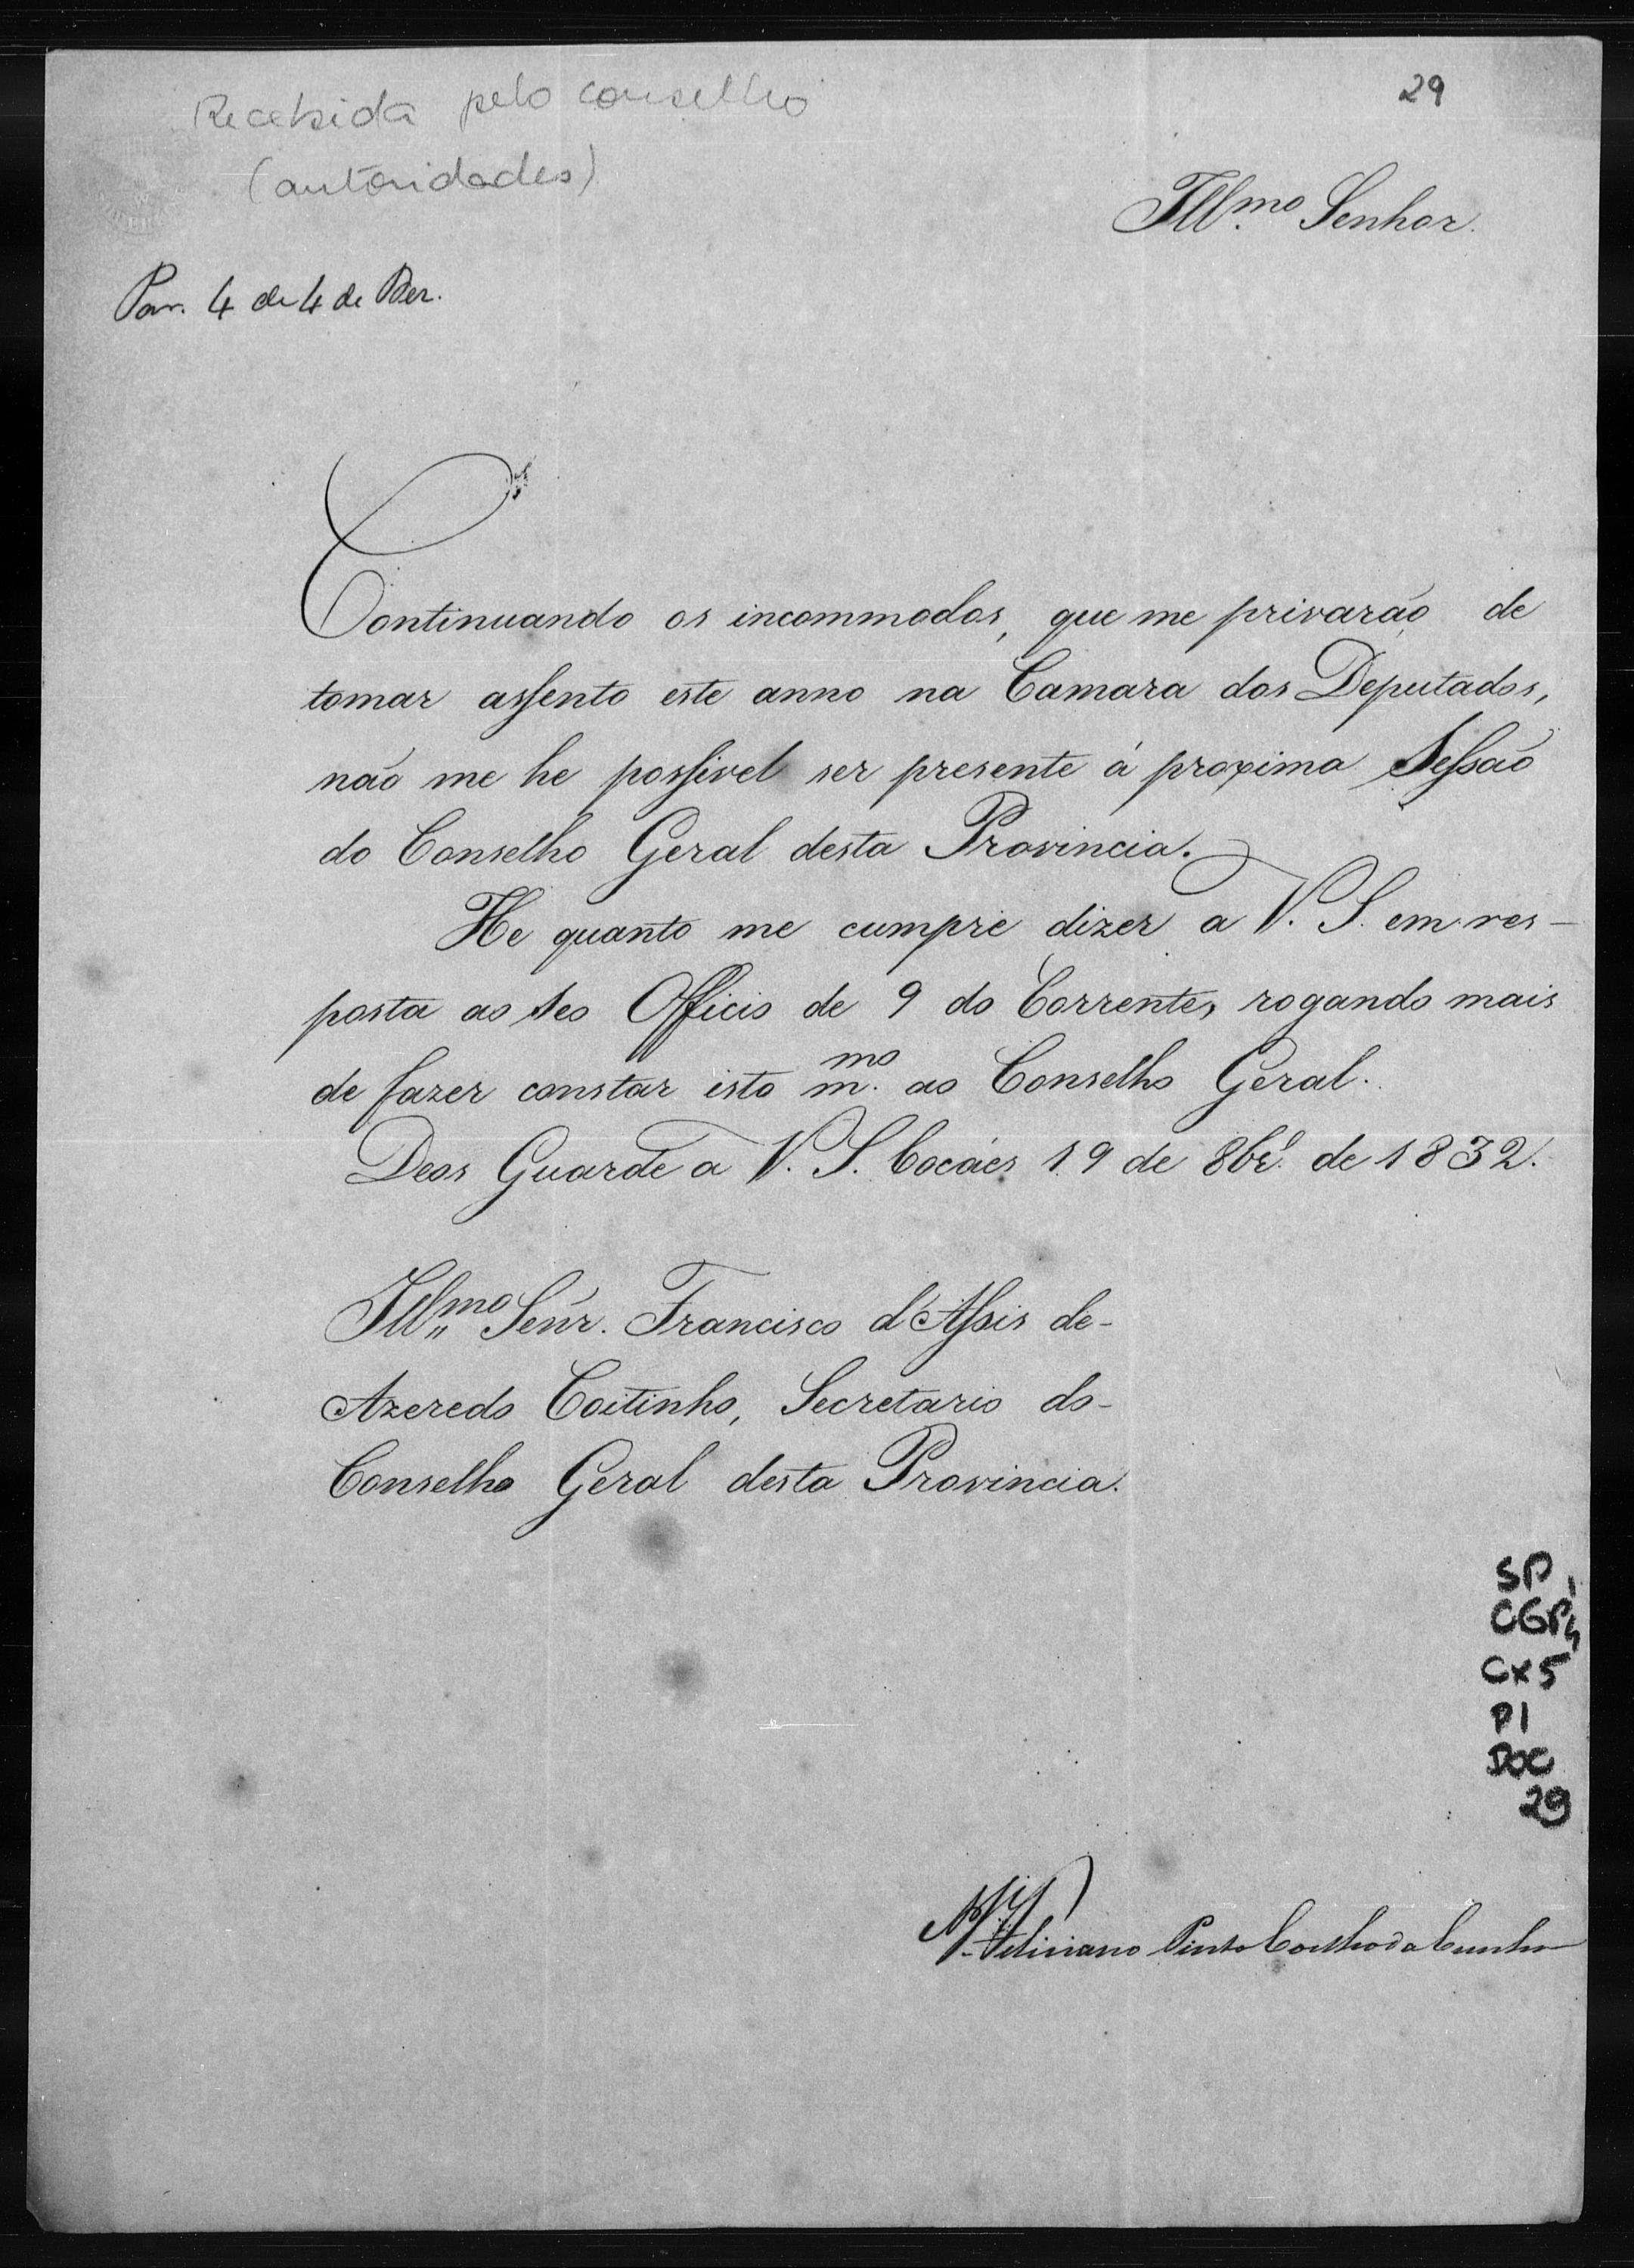 Recebida pelo conselho
(autoridades)
29
Ill.mo Senhor.
Par. 4 de 4 de Dez.
Continuando os incommodos, que me privarão de
tomar assento este anno na Camara dos Deputados,
não me he possivel ser presente á proxima Sessão
do Conselho Geral desta Provincia.
He quanto me cumpre dizer a V. S. em res-
posta ao seo Officio de 9 do Corrente, rogando mais
de fazer constar isto m.mo ao Conselho Geral.
Deos Guarde a V. S. Cocáes 19 de 8br.º de 1832.
Ill.mo Senr. Francisco d'Assis de-
Azeredo Coitinho, Secretario do-
Conselho Geral desta Provincia.
SP
CGP1
Cx5
P1
DOC
29
Feliciano Pinto Coelho da Cunha